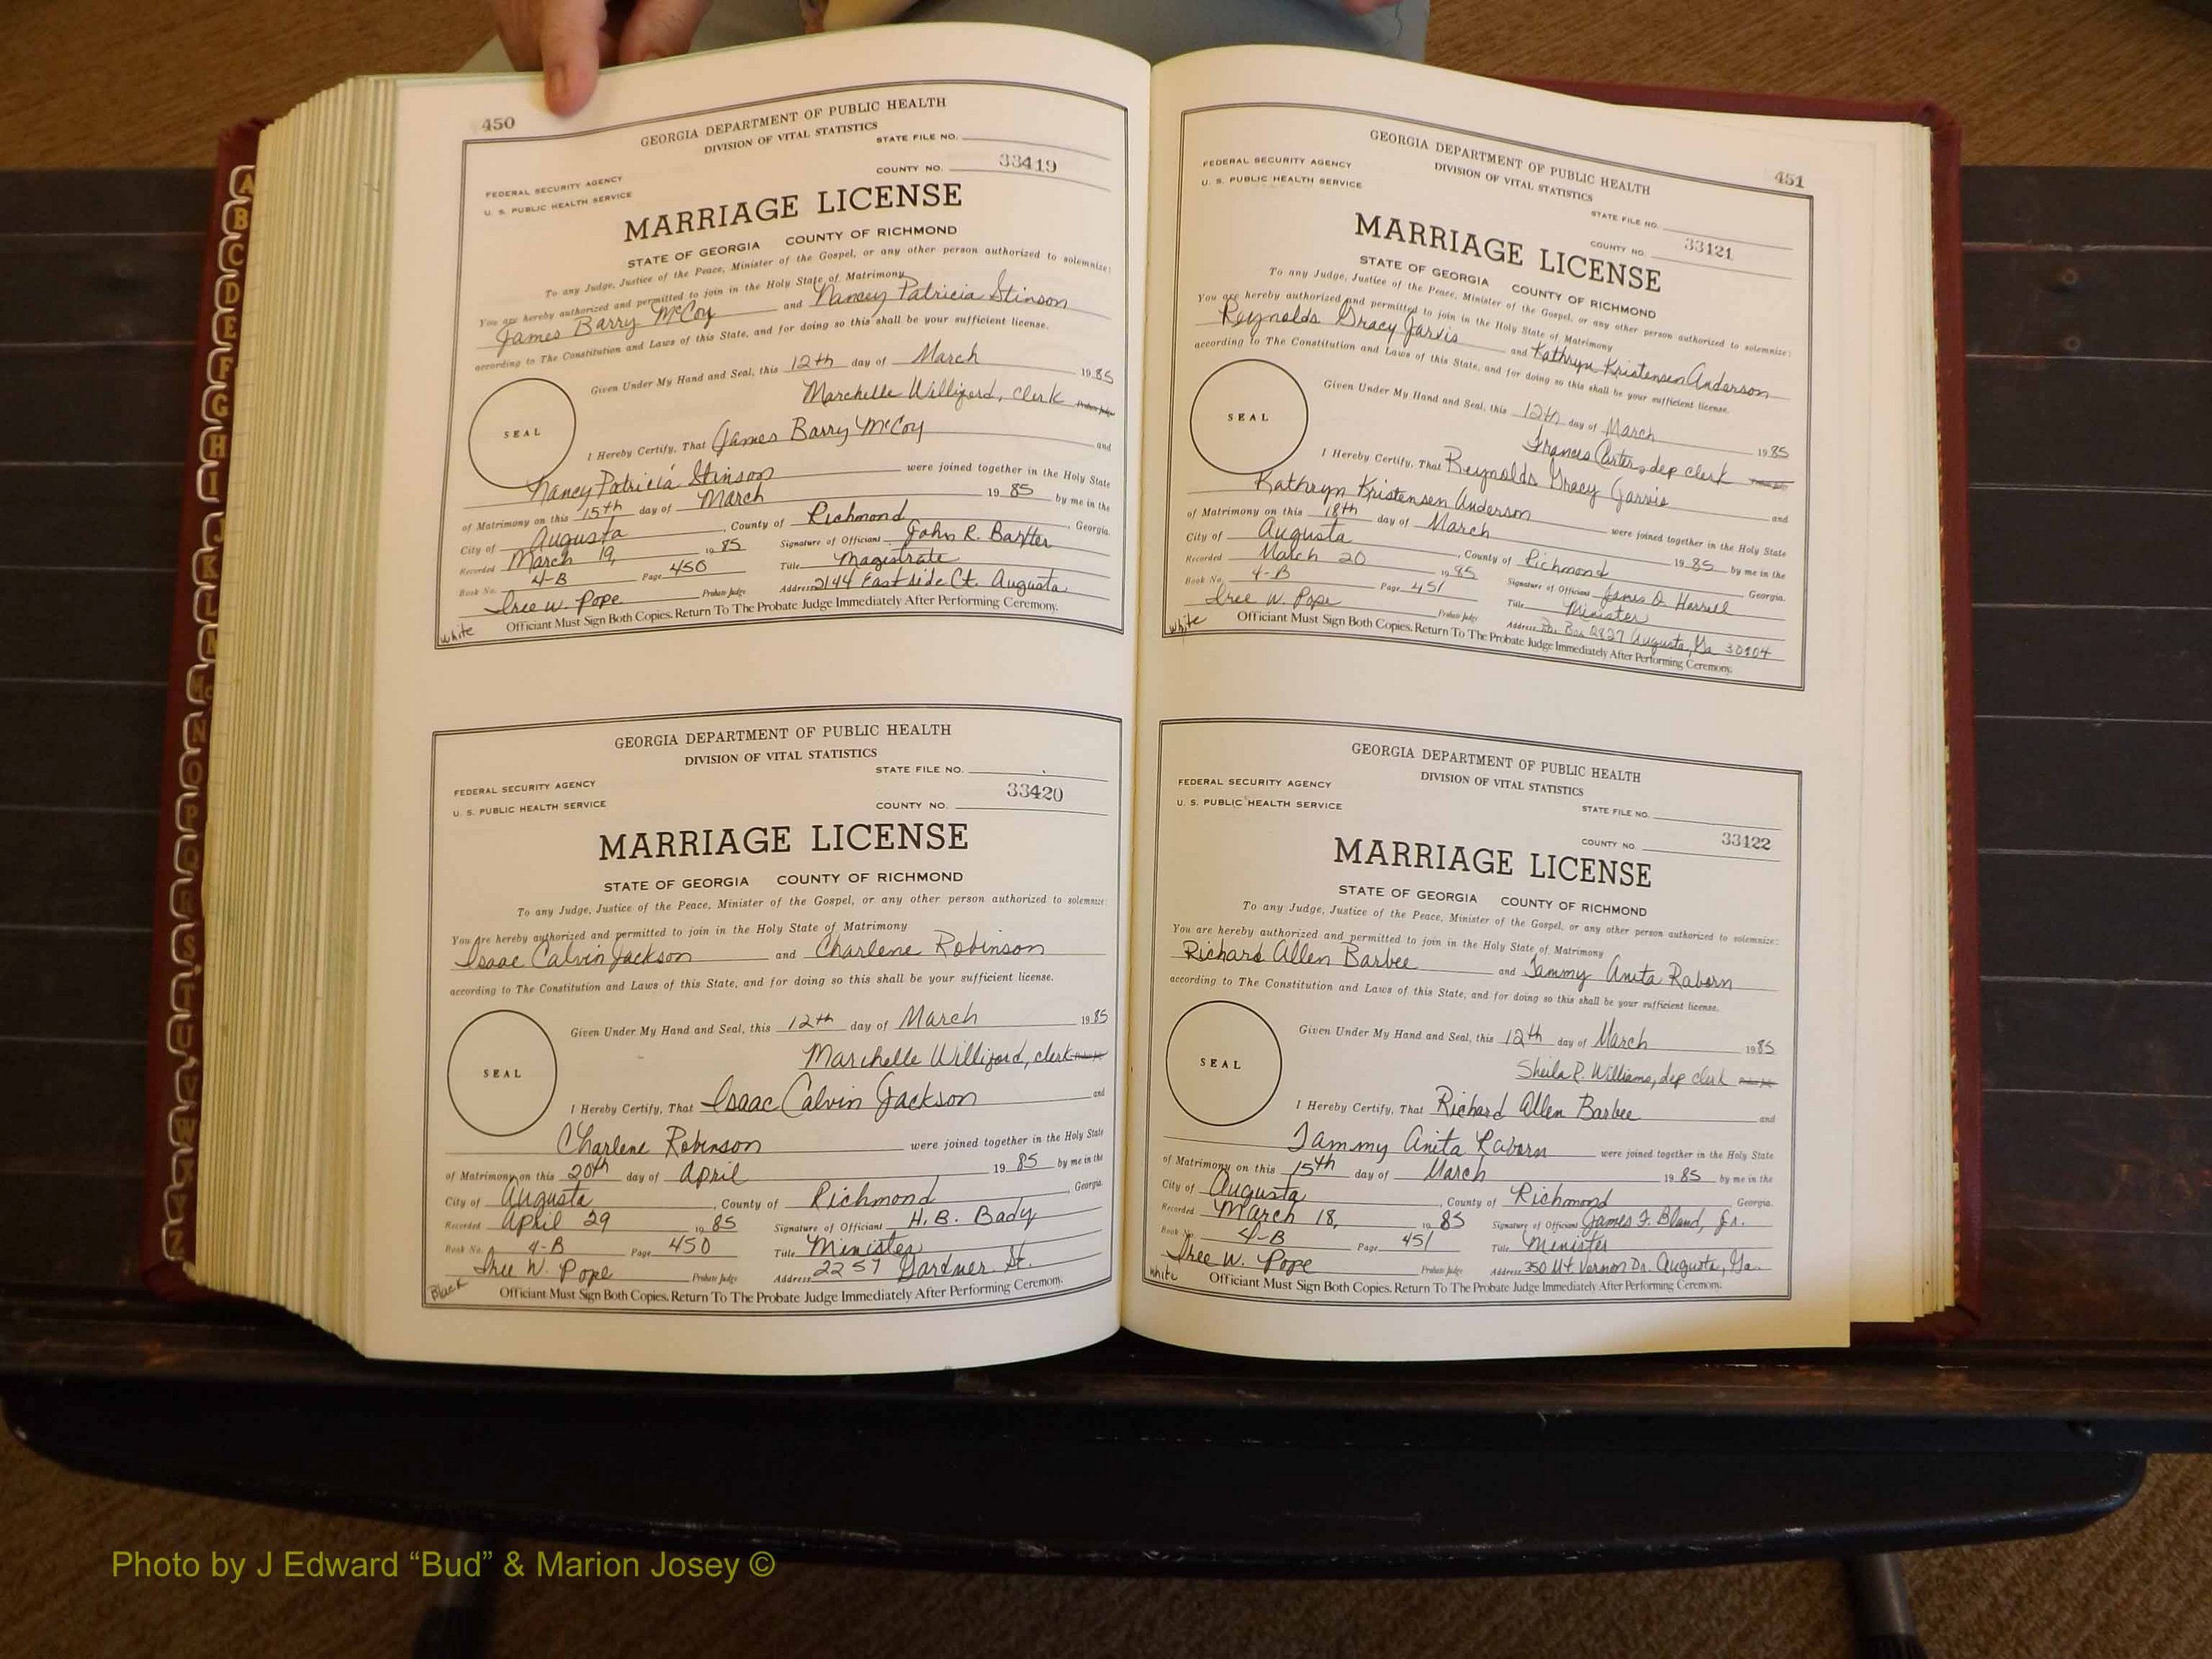 450
GEORGIA DEPARTMENT OF PUBLIC HEALTH
DIVISION OF VITAL STATISTICS
STATE FILE NO.
COUNTY NO. 33419
FEDERAL SECURITY AGENCY
U. S. PUBLIC HEALTH SERVICE
MARRIAGE LICENSE
STATE OF GEORGIA COUNTY OF RICHMOND
To any Judge, Justice of the Peace, Minister of the Gospel, or any other person authorized to solemnize:
You are hereby authorized and permitted to join in the Holy State of Matrimony
James Barry McCoy and Nancy Patricia Stinson
according to The Constitution and Laws of this State, and for doing so this shall be your sufficient license.
Given Under My Hand and Seal, this 12th day of March 1985
Marchelle Williford, clerk
SEAL
I Hereby Certify, That James Barry McCoy and
Nancy Patricia Stinson were joined together in the Holy State
of Matrimony on this 15th day of March 1985 by me in the
City of Augusta, County of Richmond, Georgia.
Recorded March 19, 1985 Signature of Officiant John R. Baxter
Book No. 4-B Page 450 Title Magistrate
Iree W. Pope Probate Judge Address 2144 Eastside Ct. Augusta
Officiant Must Sign Both Copies. Return To The Probate Judge Immediately After Performing Ceremony.
White
GEORGIA DEPARTMENT OF PUBLIC HEALTH
DIVISION OF VITAL STATISTICS
STATE FILE NO.
FEDERAL SECURITY AGENCY
U. S. PUBLIC HEALTH SERVICE
COUNTY NO. 33420
MARRIAGE LICENSE
STATE OF GEORGIA COUNTY OF RICHMOND
To any Judge, Justice of the Peace, Minister of the Gospel, or any other person authorized to solemnize:
You are hereby authorized and permitted to join in the Holy State of Matrimony
Isaac Calvin Jackson and Charlene Robinson
according to The Constitution and Laws of this State, and for doing so this shall be your sufficient license.
Given Under My Hand and Seal, this 12th day of March 1985
Marchelle Williford, clerk
SEAL
I Hereby Certify, That Isaac Calvin Jackson and
Charlene Robinson were joined together in the Holy State
of Matrimony on this 20th day of April 1985 by me in the
City of Augusta, County of Richmond, Georgia.
Recorded April 29 1985 Signature of Officiant H. B. Bady
Book No. 4-B Page 450 Title Minister
Iree W. Pope Probate Judge Address 2257 Gardner St.
Black
Officiant Must Sign Both Copies. Return To The Probate Judge Immediately After Performing Ceremony.
451
GEORGIA DEPARTMENT OF PUBLIC HEALTH
DIVISION OF VITAL STATISTICS
FEDERAL SECURITY AGENCY
U. S. PUBLIC HEALTH SERVICE
STATE FILE NO.
COUNTY NO. 33121
MARRIAGE LICENSE
STATE OF GEORGIA COUNTY OF RICHMOND
To any Judge, Justice of the Peace, Minister of the Gospel, or any other person authorized to solemnize:
You are hereby authorized and permitted to join in the Holy State of Matrimony
Reynolds Gracy Jarvis and Kathryn Kristensen Anderson
according to The Constitution and Laws of this State, and for doing so this shall be your sufficient license.
Given Under My Hand and Seal, this 12th day of March 1985
Frances Carter, dep clerk
SEAL
I Hereby Certify, That Reynolds Gracy Jarvis and
Kathryn Kristensen Anderson were joined together in the Holy State
of Matrimony on this 18th day of March 1985 by me in the
City of Augusta, County of Richmond, Georgia.
Recorded March 20 1985 Signature of Officiant James O. Harrell
Book No. 4-B Page 451 Title Minister
Iree W. Pope Probate Judge Address Box 2827 Augusta, Ga 30904
White
Officiant Must Sign Both Copies. Return To The Probate Judge Immediately After Performing Ceremony.
GEORGIA DEPARTMENT OF PUBLIC HEALTH
DIVISION OF VITAL STATISTICS
FEDERAL SECURITY AGENCY
U. S. PUBLIC HEALTH SERVICE
STATE FILE NO.
COUNTY NO. 33122
MARRIAGE LICENSE
STATE OF GEORGIA COUNTY OF RICHMOND
To any Judge, Justice of the Peace, Minister of the Gospel, or any other person authorized to solemnize:
You are hereby authorized and permitted to join in the Holy State of Matrimony
Richard Allen Barbee and Tammy Anita Raborn
according to The Constitution and Laws of this State, and for doing so this shall be your sufficient license.
Given Under My Hand and Seal, this 12th day of March 1985
Sheila P. Williams, dep clerk
SEAL
I Hereby Certify, That Richard Allen Barbee and
Tammy Anita Raborn were joined together in the Holy State
of Matrimony on this 15th day of March 1985 by me in the
City of Augusta, County of Richmond Georgia.
Recorded March 18, 1985 Signature of Officiant James F. Bland, Jr.
Book No. 4-B Page 451 Title Minister
Iree W. Pope Probate Judge Address 350 Mt. Vernon Dr. Augusta, Ga.
White
Officiant Must Sign Both Copies. Return To The Probate Judge Immediately After Performing Ceremony.
A
B
C
D
E
F
G
H
I
J
K
L
M
Mc
N
O
P
Q
R
S
T
U
V
W
X
Y
Z
Photo by J Edward “Bud” & Marion Josey ©